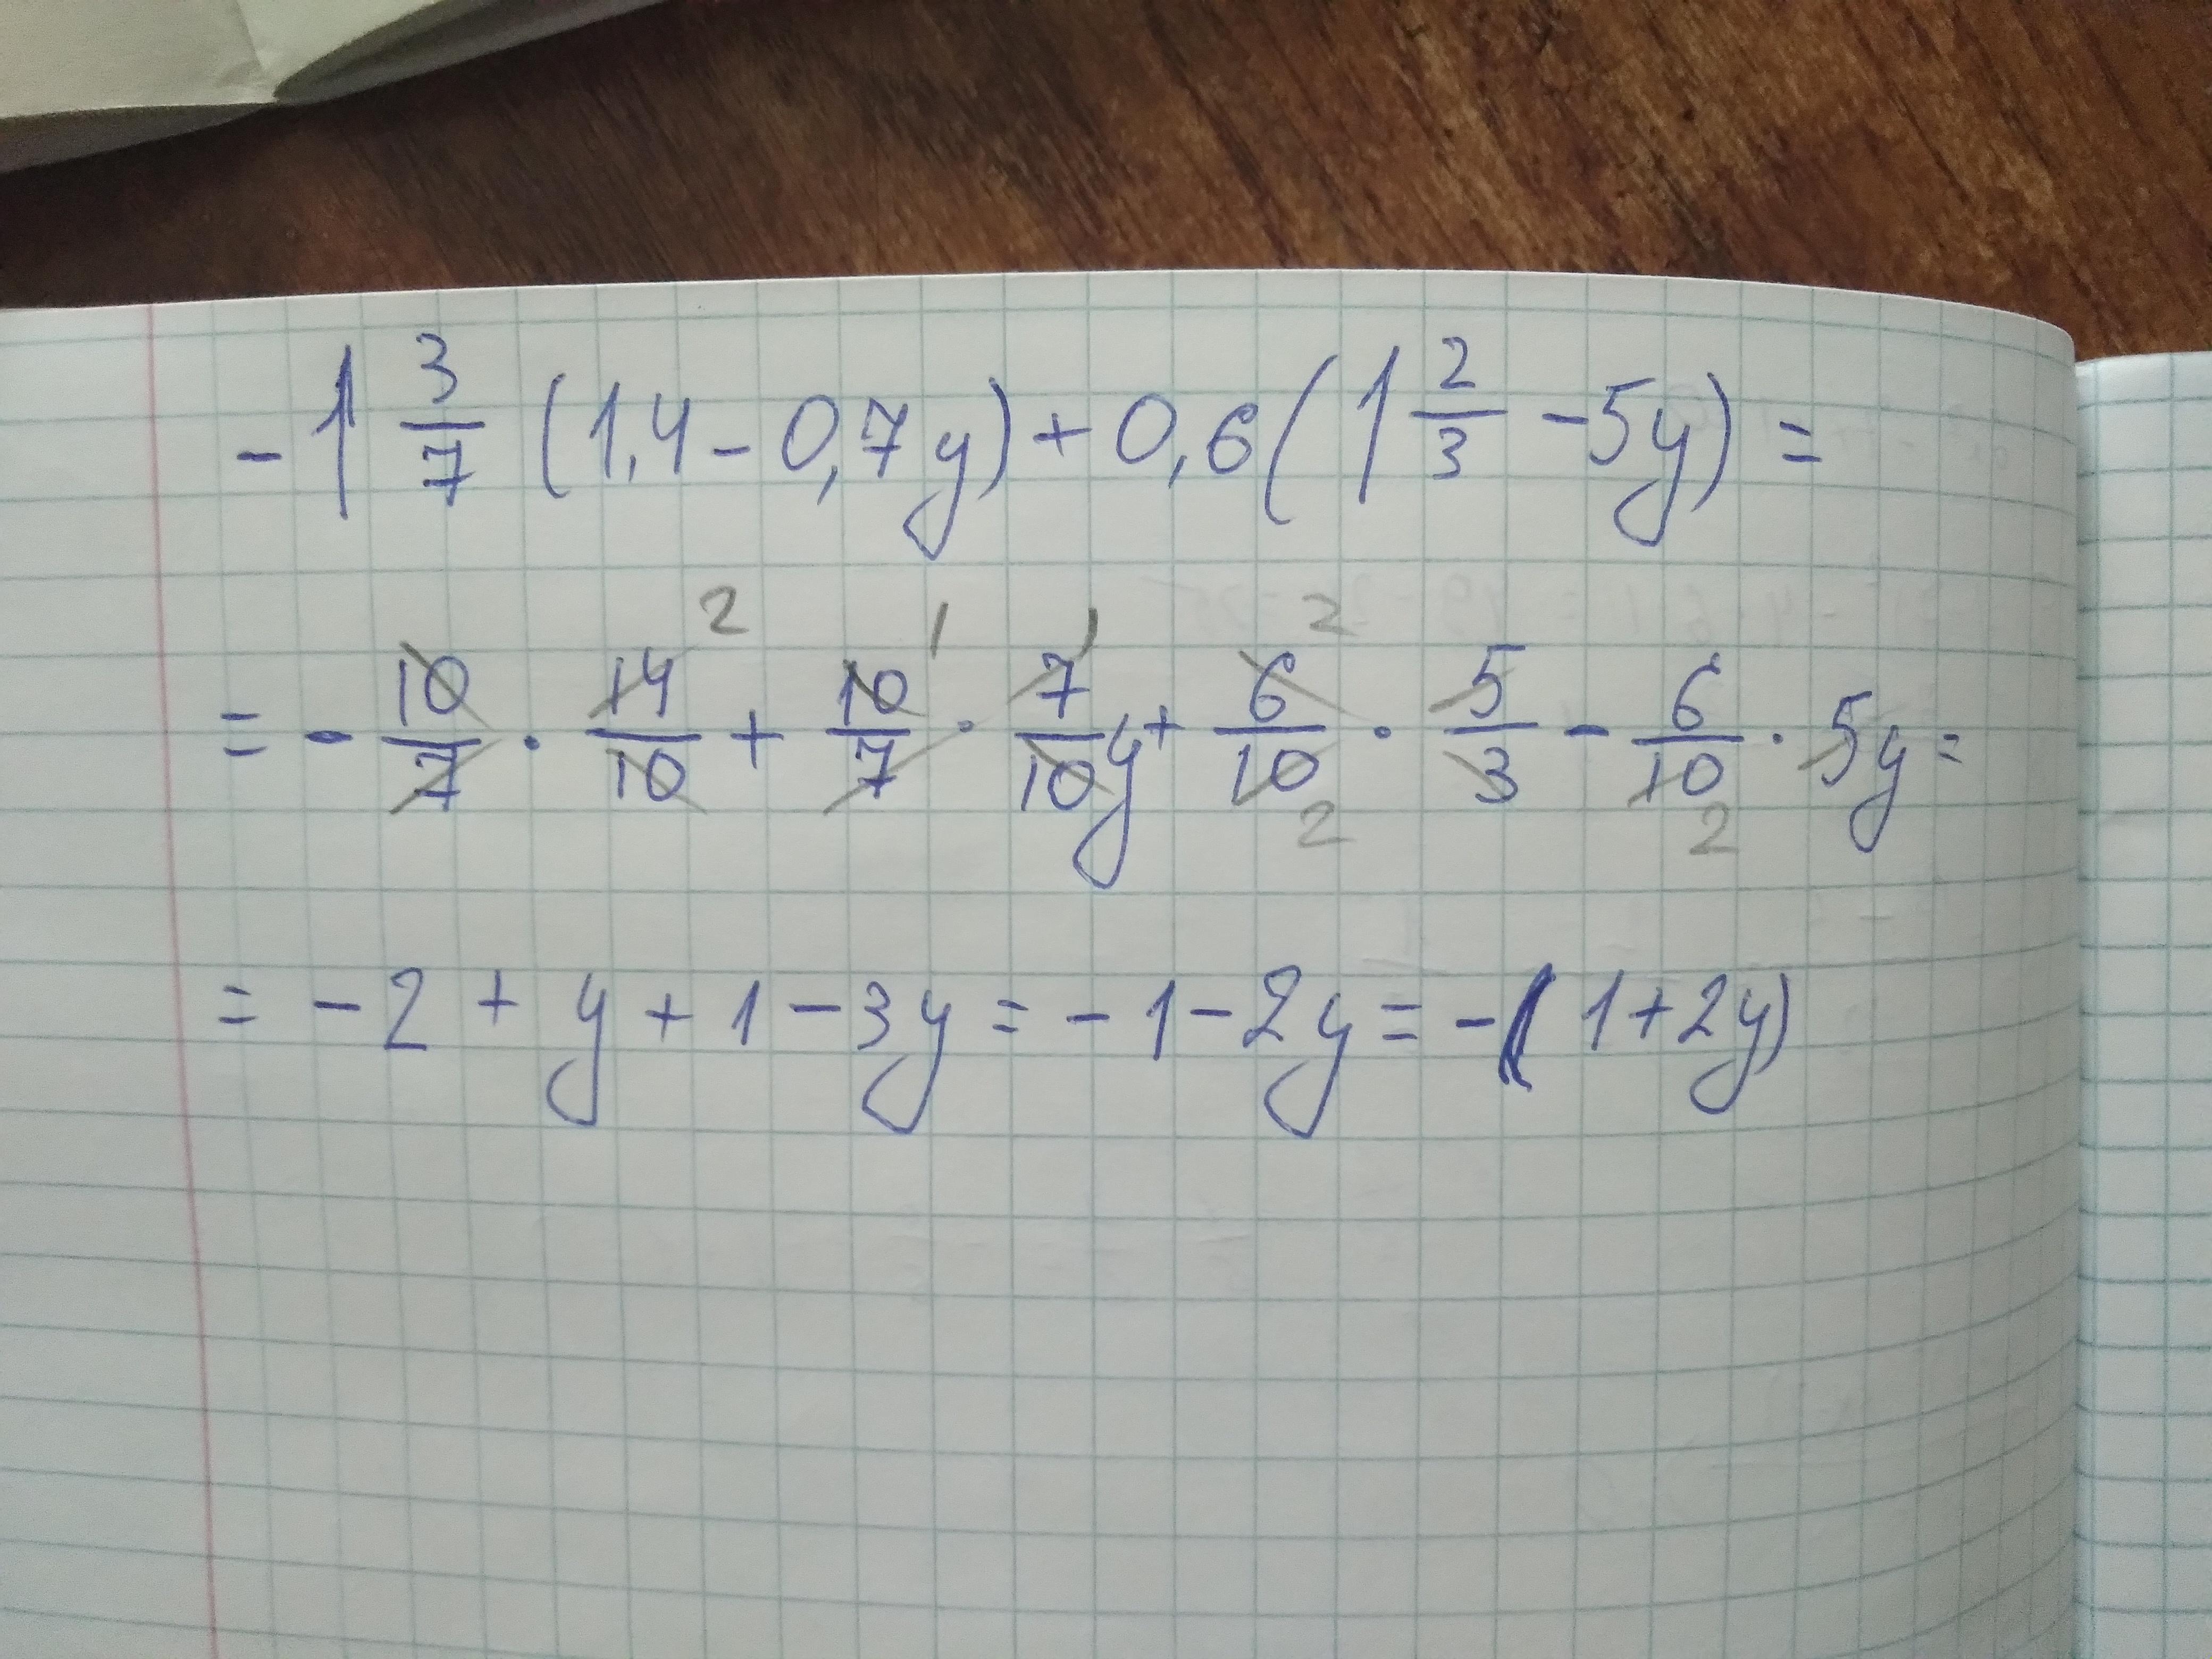 -1 3/7 (1,4 - 0,7y) + 0,6 (1 2/3 - 5y) =
2 1 1 2
= - 10/7 · 14/10 + 10/7 · 7/10 y + 6/10 · 5/3 - 6/10 · 5y =
2 2
= -2 + y + 1 - 3y = -1 - 2y = -(1 + 2y)